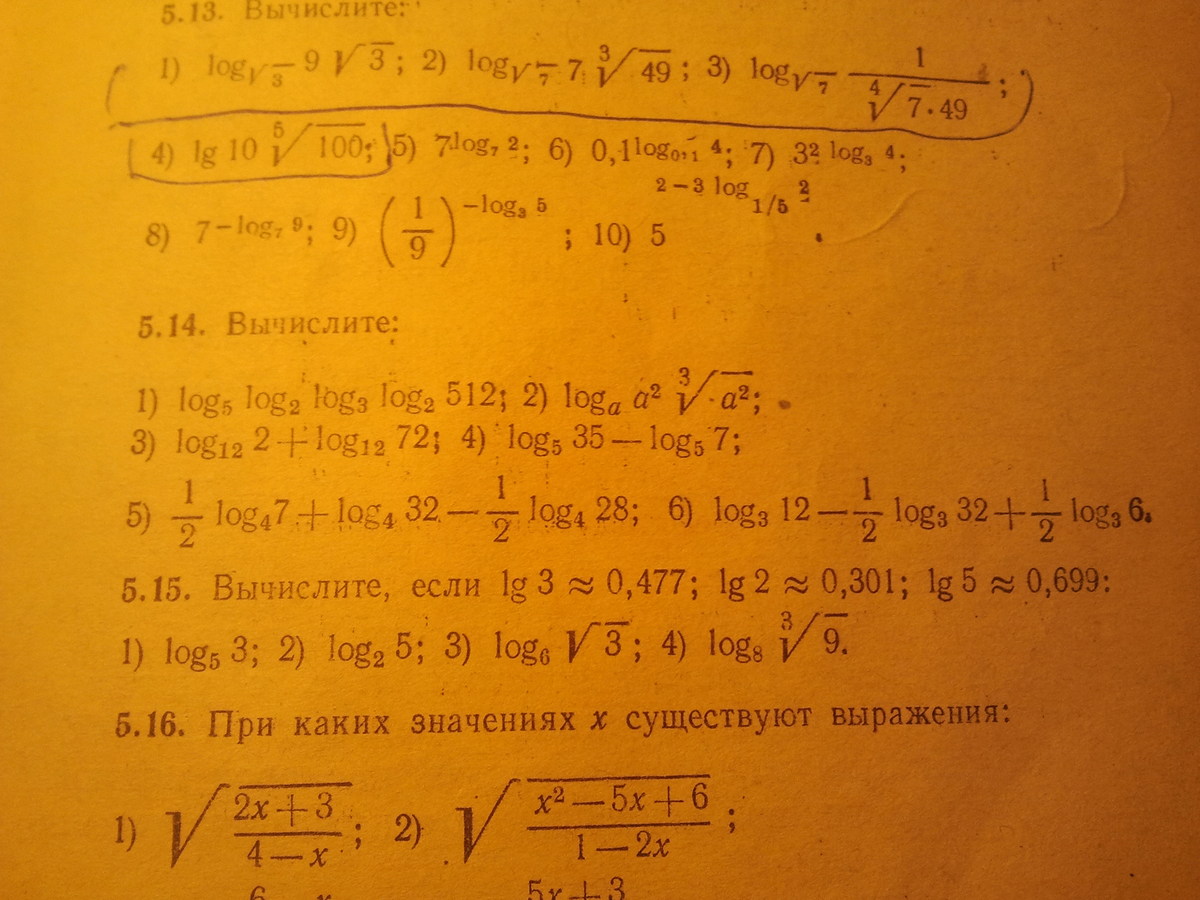 5.13. Вычислите:
1) log_{√3} 9 √3; 2) log_{√7} 7 ∛49; 3) log_{√7} 1/(⁴√7·49);
4) lg 10 ⁵√100; 5) 7^{log₇ 2}; 6) 0,1^{log₀,₁ 4}; 7) 3^{2 log₃ 4};
8) 7^{−log₇ 9}; 9) (1/9)^{−log₃ 5}; 10) 5^{2−3 log_{1/5} 2}.
5.14. Вычислите:
1) log₅ log₂ log₃ log₂ 512; 2) logₐ a² ∛a²;
3) log₁₂ 2 + log₁₂ 72; 4) log₅ 35 — log₅ 7;
5) 1/2 log₄7 + log₄ 32 — 1/2 log₄ 28; 6) log₃ 12 — 1/2 log₃ 32 + 1/2 log₃ 6.
5.15. Вычислите, если lg 3 ≈ 0,477; lg 2 ≈ 0,301; lg 5 ≈ 0,699:
1) log₅ 3; 2) log₂ 5; 3) log₆ √3; 4) log₈ ∛9.
5.16. При каких значениях x существуют выражения:
1) √((2x+3)/(4—x)); 2) √((x²—5x+6)/(1—2x));